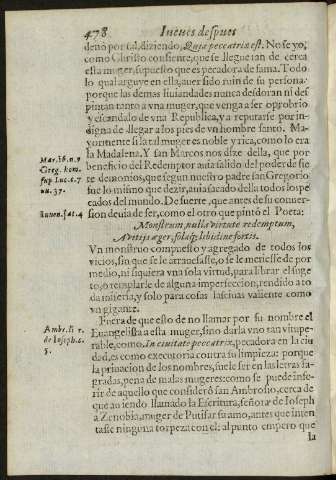 478 Iueues despues
denò por tal, diziendo, Quia peccatrix est. No se yo,
como Christo consiente, que se llegue tan de cerca
esta muger, supuesto que es pecadora de fama. Todo
lo qual arguye en ella, auer sido ruin de su persona:
porque las demas liuiandades nunca desdoran ni des
pintan tanto a vna muger, que venga a ser oprobrio
y escandalo de vna Republica, y a reputarse por in-
digna de llegar a los pies de vn hombre santo. Ma-
yormente si la tal muger es noble y rica, como lo era
la Madalena. Y san Marcos nos dize della, que por
beneficio del Redemptor auia salido del poder de sie
te demonios, que segun nuestro padre san Gregorio
fue lo mismo que dezir, auia sacado della todos los pe
cados del mundo. De suerte, que antes de su conuer-
sion deuia de ser, como el otro que pintò el Poeta:
Monstrum, nulla virtute redemptum,
A vitijs æger, solaq; libidine fortis.
Vn monstruo compuesto y agregado de todos los
vicios, sin que se le arrancasse, o se le metiesse de por
medio, ni siquiera vna sola virtud, para librar el suge
to, o templarle de alguna imperfeccion, rendido a to
da miseria, y solo para cosas lasciuas valiente como
vn gigante.
Fuera de que esso de no llamar por su nombre el
Euangelista a esta muger, sino darla vno tan vitupe-
rable, como, In ciuitate peccatrix, pecadora en la ciu
dad, es como executoria contra su limpieza: porque
la priuacion de los nombres, suele ser en las letras sa-
gradas, pena de malas mugeres: como se puede infe-
rir de aquello que considerò san Ambrosio, cerca de
que auiendo llamado la Escritura, señora de Ioseph
a Zenobia, muger de Putifar su amo, antes que inten
tasse ninguna torpeza con el: al punto empero que
la
Mar. 16. n. 9
Greg. hom.
sup Luc. c. 7
nu. 37.
Iuuen. sat. 4
Ambr. li 1.
de Ioseph. c.
5.